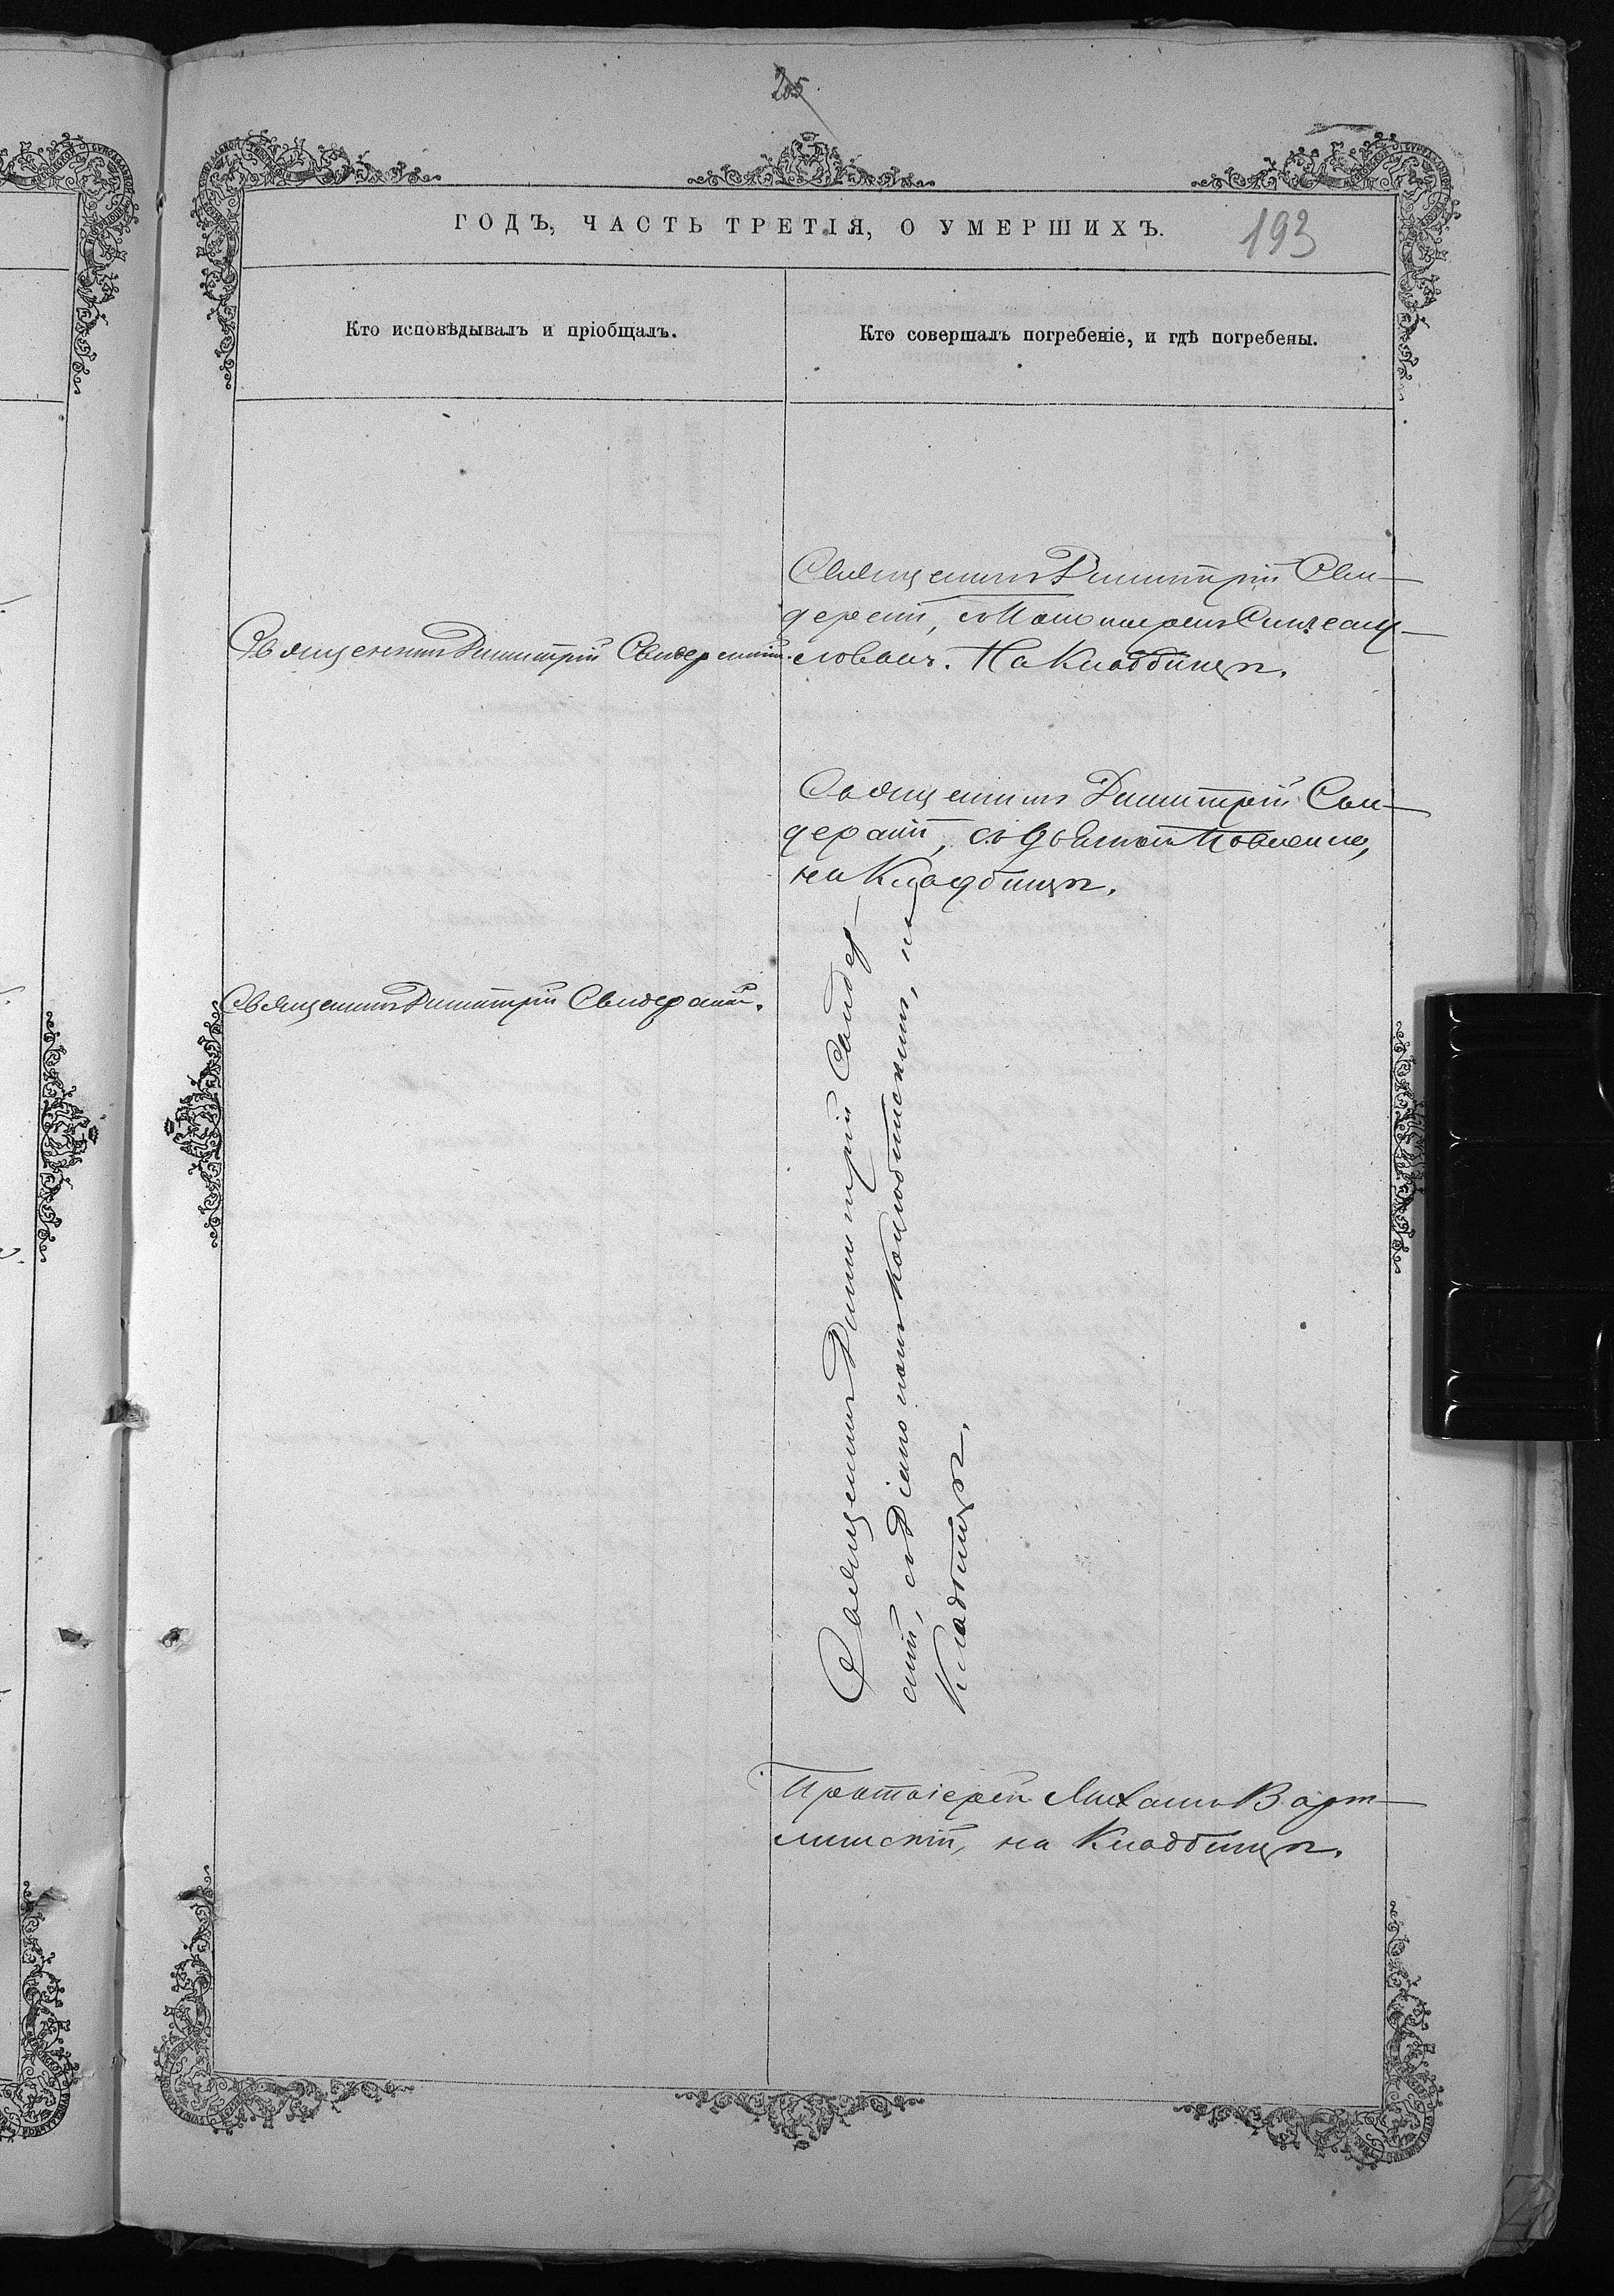 205
ГОДЪ, ЧАСТЬ ТРЕТІЯ, О УМЕРШИХЪ.
193
Кто исповѣдывалъ и пріобщалъ.
Кто совершалъ погребеніе, и гдѣ погребены.
Священникъ Димитрій Свидерскій.
Священникъ Димитрій Сви-
дерскій, съ
На Кладбищѣ.
Священникъ Димитрій Сви-
дерскій, съ
на Кладбищѣ.
Священникъ Димитрій Свидерскій.
Священникъ Димитрій Свидер-
скій, съ на
Кладбищѣ.
Протоіерей Михаилъ
на Кладбищѣ.